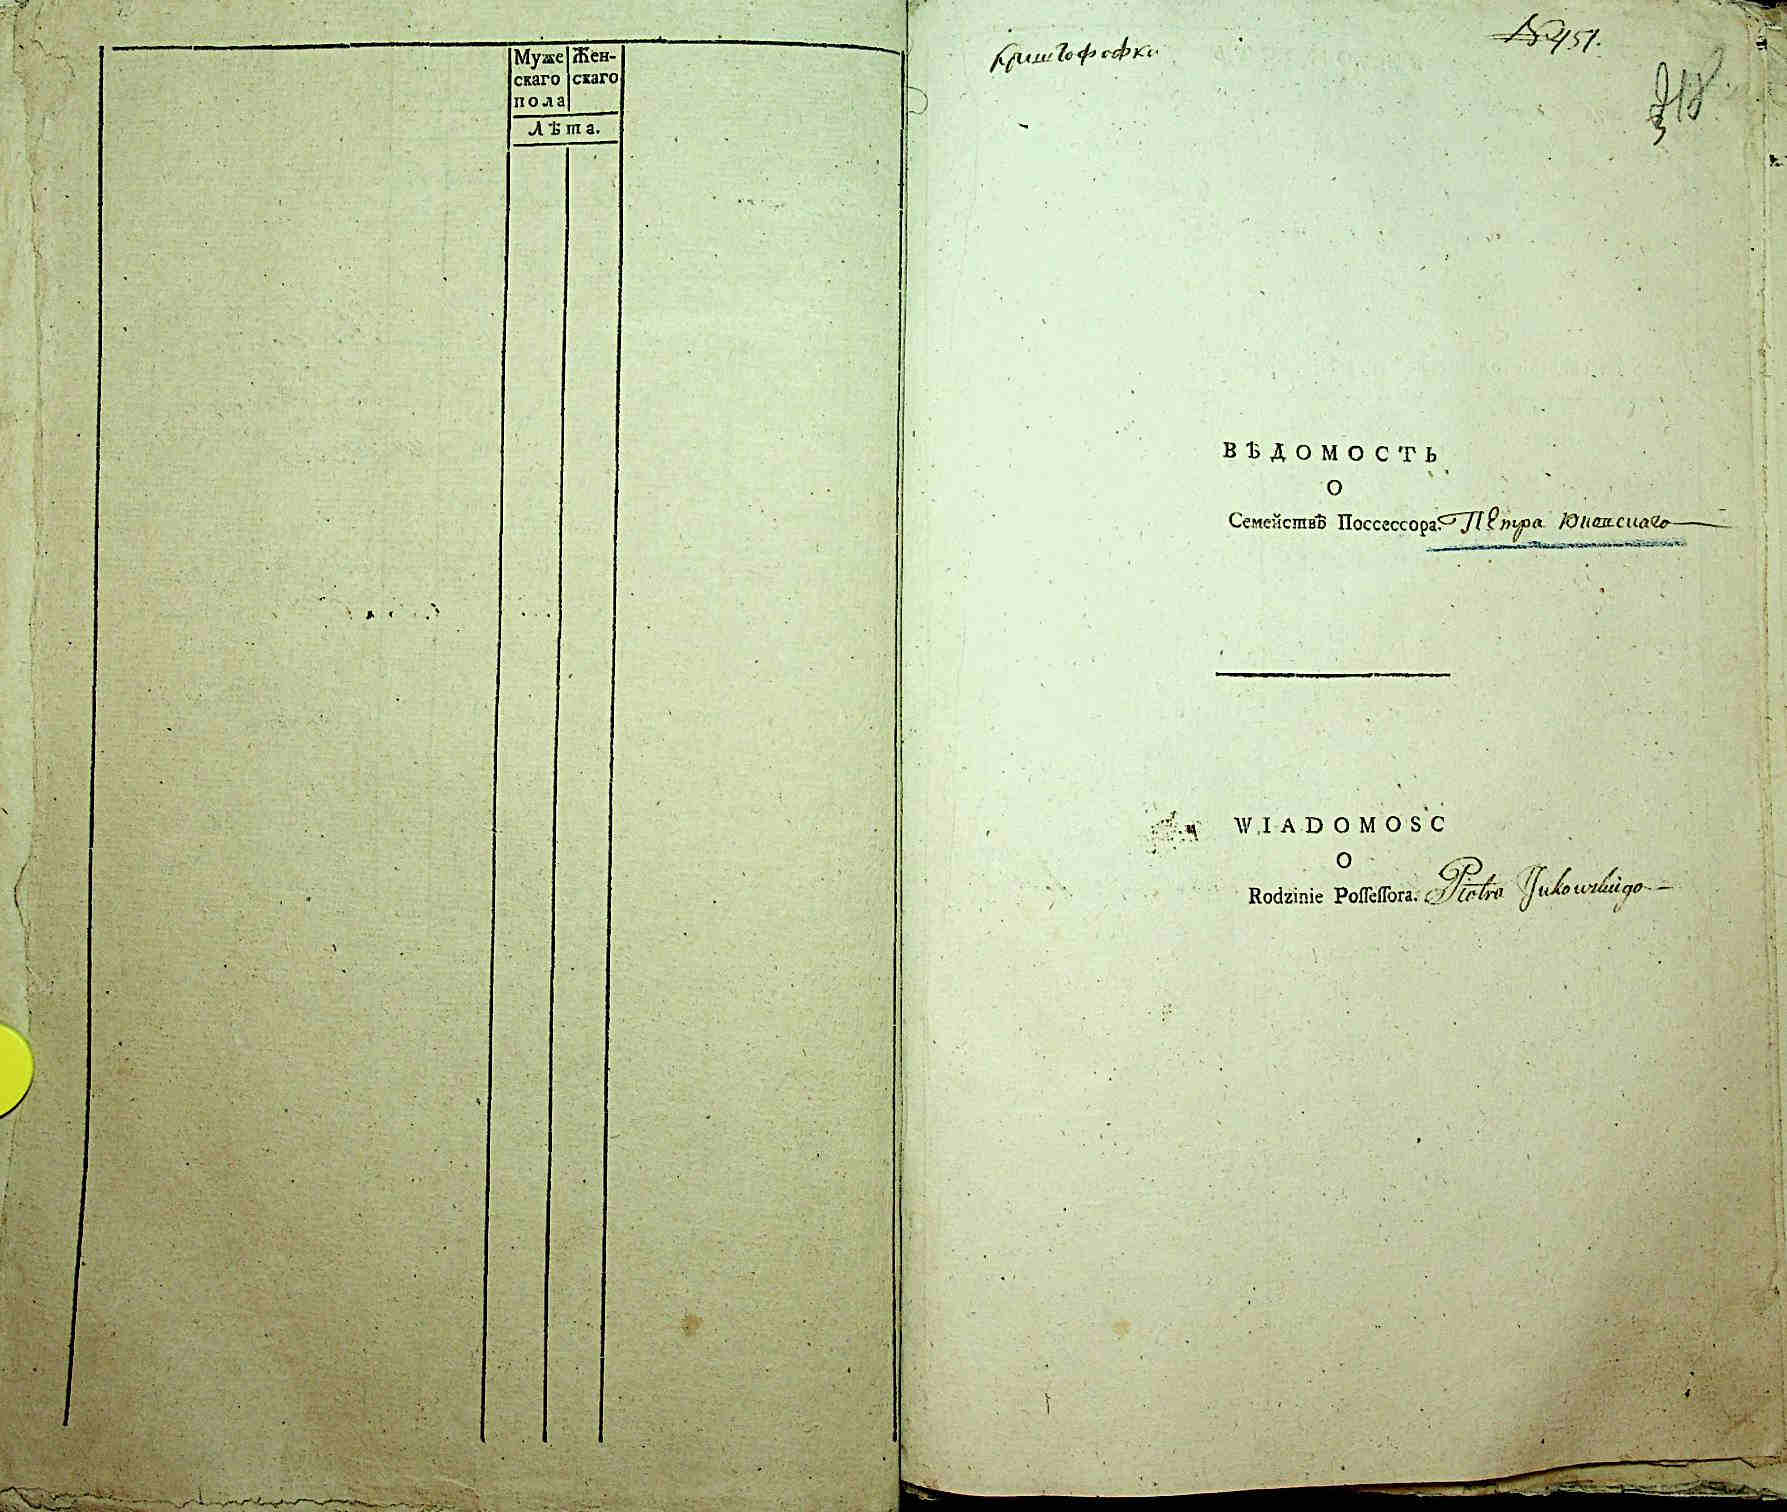 Муже Жен-
скаго скаго
пола
Лѣта.
Криштофофки
№ 451.
ВѢДОМОСТЬ
О
Семействѣ Поссессора. Петра Юковскаго
WIADOMOSC
O
Rodzinie Poſſeſſora. Piotra Jukowskiego